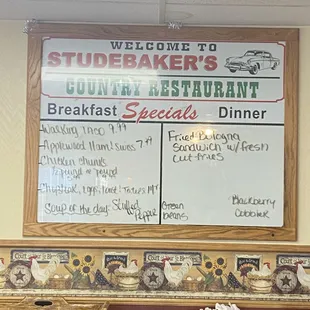 WELCOME TO
STUDEBAKER'S
COUNTRY RESTAURANT
Breakfast Specials Dinner
Walking Taco 9.99
Applewood Ham/Swiss 7.99
Chicken chunks
Chopsteak, eggs,
Soup of the day: Stuffed
Pepper
Fried Bologna
Sandwich w/fresh
cut fries
Green
beans
Blackberry
Cobbler